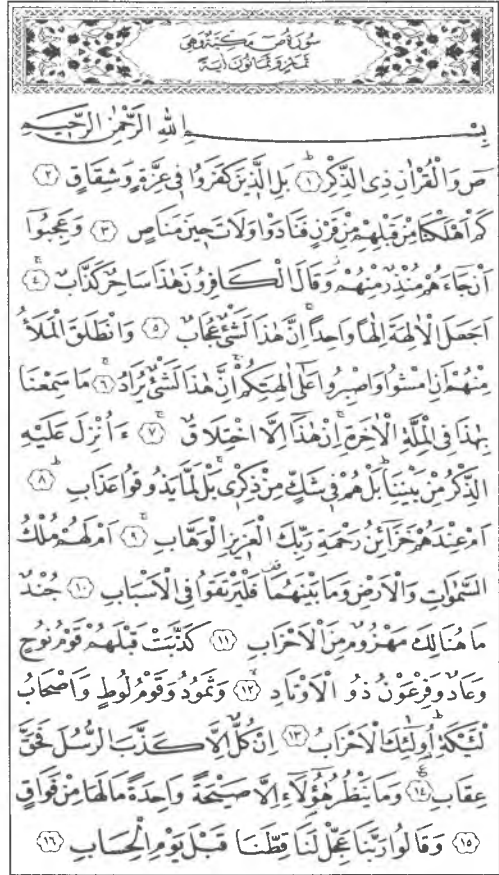 سُورَةُ صٓ مَكِّيَّةٌ وَهِيَ
ثَمَانٍ وَثَمَانُونَ اٰيَةً
بِسْمِ اللّٰهِ الرَّحْمٰنِ الرَّحِيمِ
صٓ وَالْقُرْاٰنِ ذِى الذِّكْرِۜ ﴿١﴾ بَلِ الَّذِينَ كَفَرُوا فِى عِزَّةٍ وَشِقَاقٍ ﴿٢﴾
كَمْ اَهْلَكْنَا مِنْ قَبْلِهِمْ مِنْ قَرْنٍ فَنَادَوْا وَلَاتَ حِينَ مَنَاصٍ ﴿٣﴾ وَعَجِبُٓوا
اَنْ جَٓاءَهُمْ مُنْذِرٌ مِنْهُمْۘ وَقَالَ الْكَافِرُونَ هٰذَا سَاحِرٌ كَذَّابٌۚ ﴿٤﴾
اَجَعَلَ الْاٰلِهَةَ اِلٰهًا وَاحِدًاۚ اِنَّ هٰذَا لَشَىْءٌ عُجَابٌ ﴿٥﴾ وَانْطَلَقَ الْمَلَاُ
مِنْهُمْ اَنِ امْشُوا وَاصْبِرُوا عَلٰٓى اٰلِهَتِكُمْۚ اِنَّ هٰذَا لَشَىْءٌ يُرَادُۚ ﴿٦﴾ مَا سَمِعْنَا
بِهٰذَا فِى الْمِلَّةِ الْاٰخِرَةِۚ اِنْ هٰذَٓا اِلَّا اخْتِلَاقٌۚ ﴿٧﴾ ءَاُنْزِلَ عَلَيْهِ
الذِّكْرُ مِنْ بَيْنِنَاۜ بَلْ هُمْ فِى شَكٍّ مِنْ ذِكْرِىۚ بَلْ لَمَّا يَذُوقُوا عَذَابِۜ ﴿٨﴾
اَمْ عِنْدَهُمْ خَزَٓائِنُ رَحْمَةِ رَبِّكَ الْعَزِيزِ الْوَهَّابِۚ ﴿٩﴾ اَمْ لَهُمْ مُلْكُ
السَّمٰوَاتِ وَالْاَرْضِ وَمَا بَيْنَهُمَا۠ فَلْيَرْتَقُوا فِى الْاَسْبَابِ ﴿١٠﴾ جُنْدٌ
مَا هُنَالِكَ مَهْزُومٌ مِنَ الْاَحْزَابِ ﴿١١﴾ كَذَّبَتْ قَبْلَهُمْ قَوْمُ نُوحٍ
وَعَادٌ وَفِرْعَوْنُ ذُو الْاَوْتَادِۙ ﴿١٢﴾ وَثَمُودُ وَقَوْمُ لُوطٍ وَاَصْحَابُ
لْـَٔيْكَةِۜ اُولٰٓئِكَ الْاَحْزَابُ ﴿١٣﴾ اِنْ كُلٌّ اِلَّا كَذَّبَ الرُّسُلَ فَحَقَّ
عِقَابِ ﴿١٤﴾ وَمَا يَنْظُرُ هٰٓؤُلَٓاءِ اِلَّا صَيْحَةً وَاحِدَةً مَا لَهَا مِنْ فَوَاقٍ
﴿١٥﴾ وَقَالُوا رَبَّنَا عَجِّلْ لَنَا قِطَّنَا قَبْلَ يَوْمِ الْحِسَابِ ﴿١٦﴾